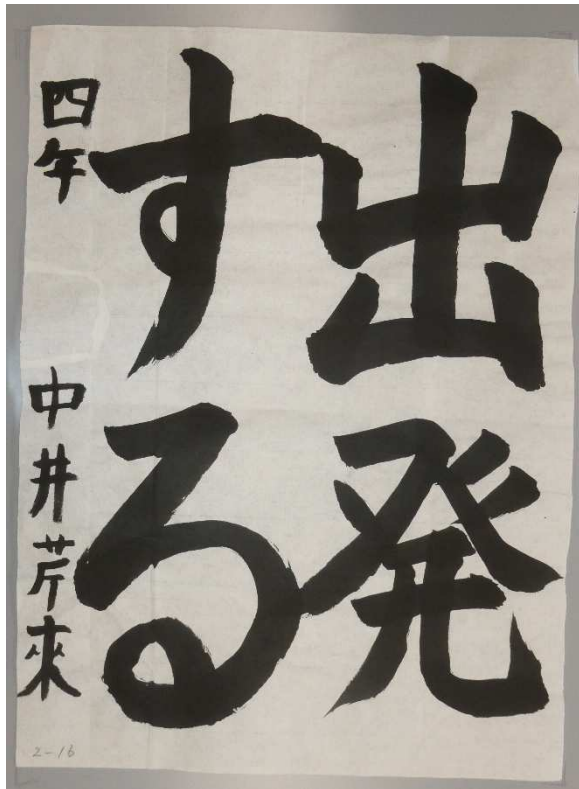 出発
する
四年 中井芹來
2-16